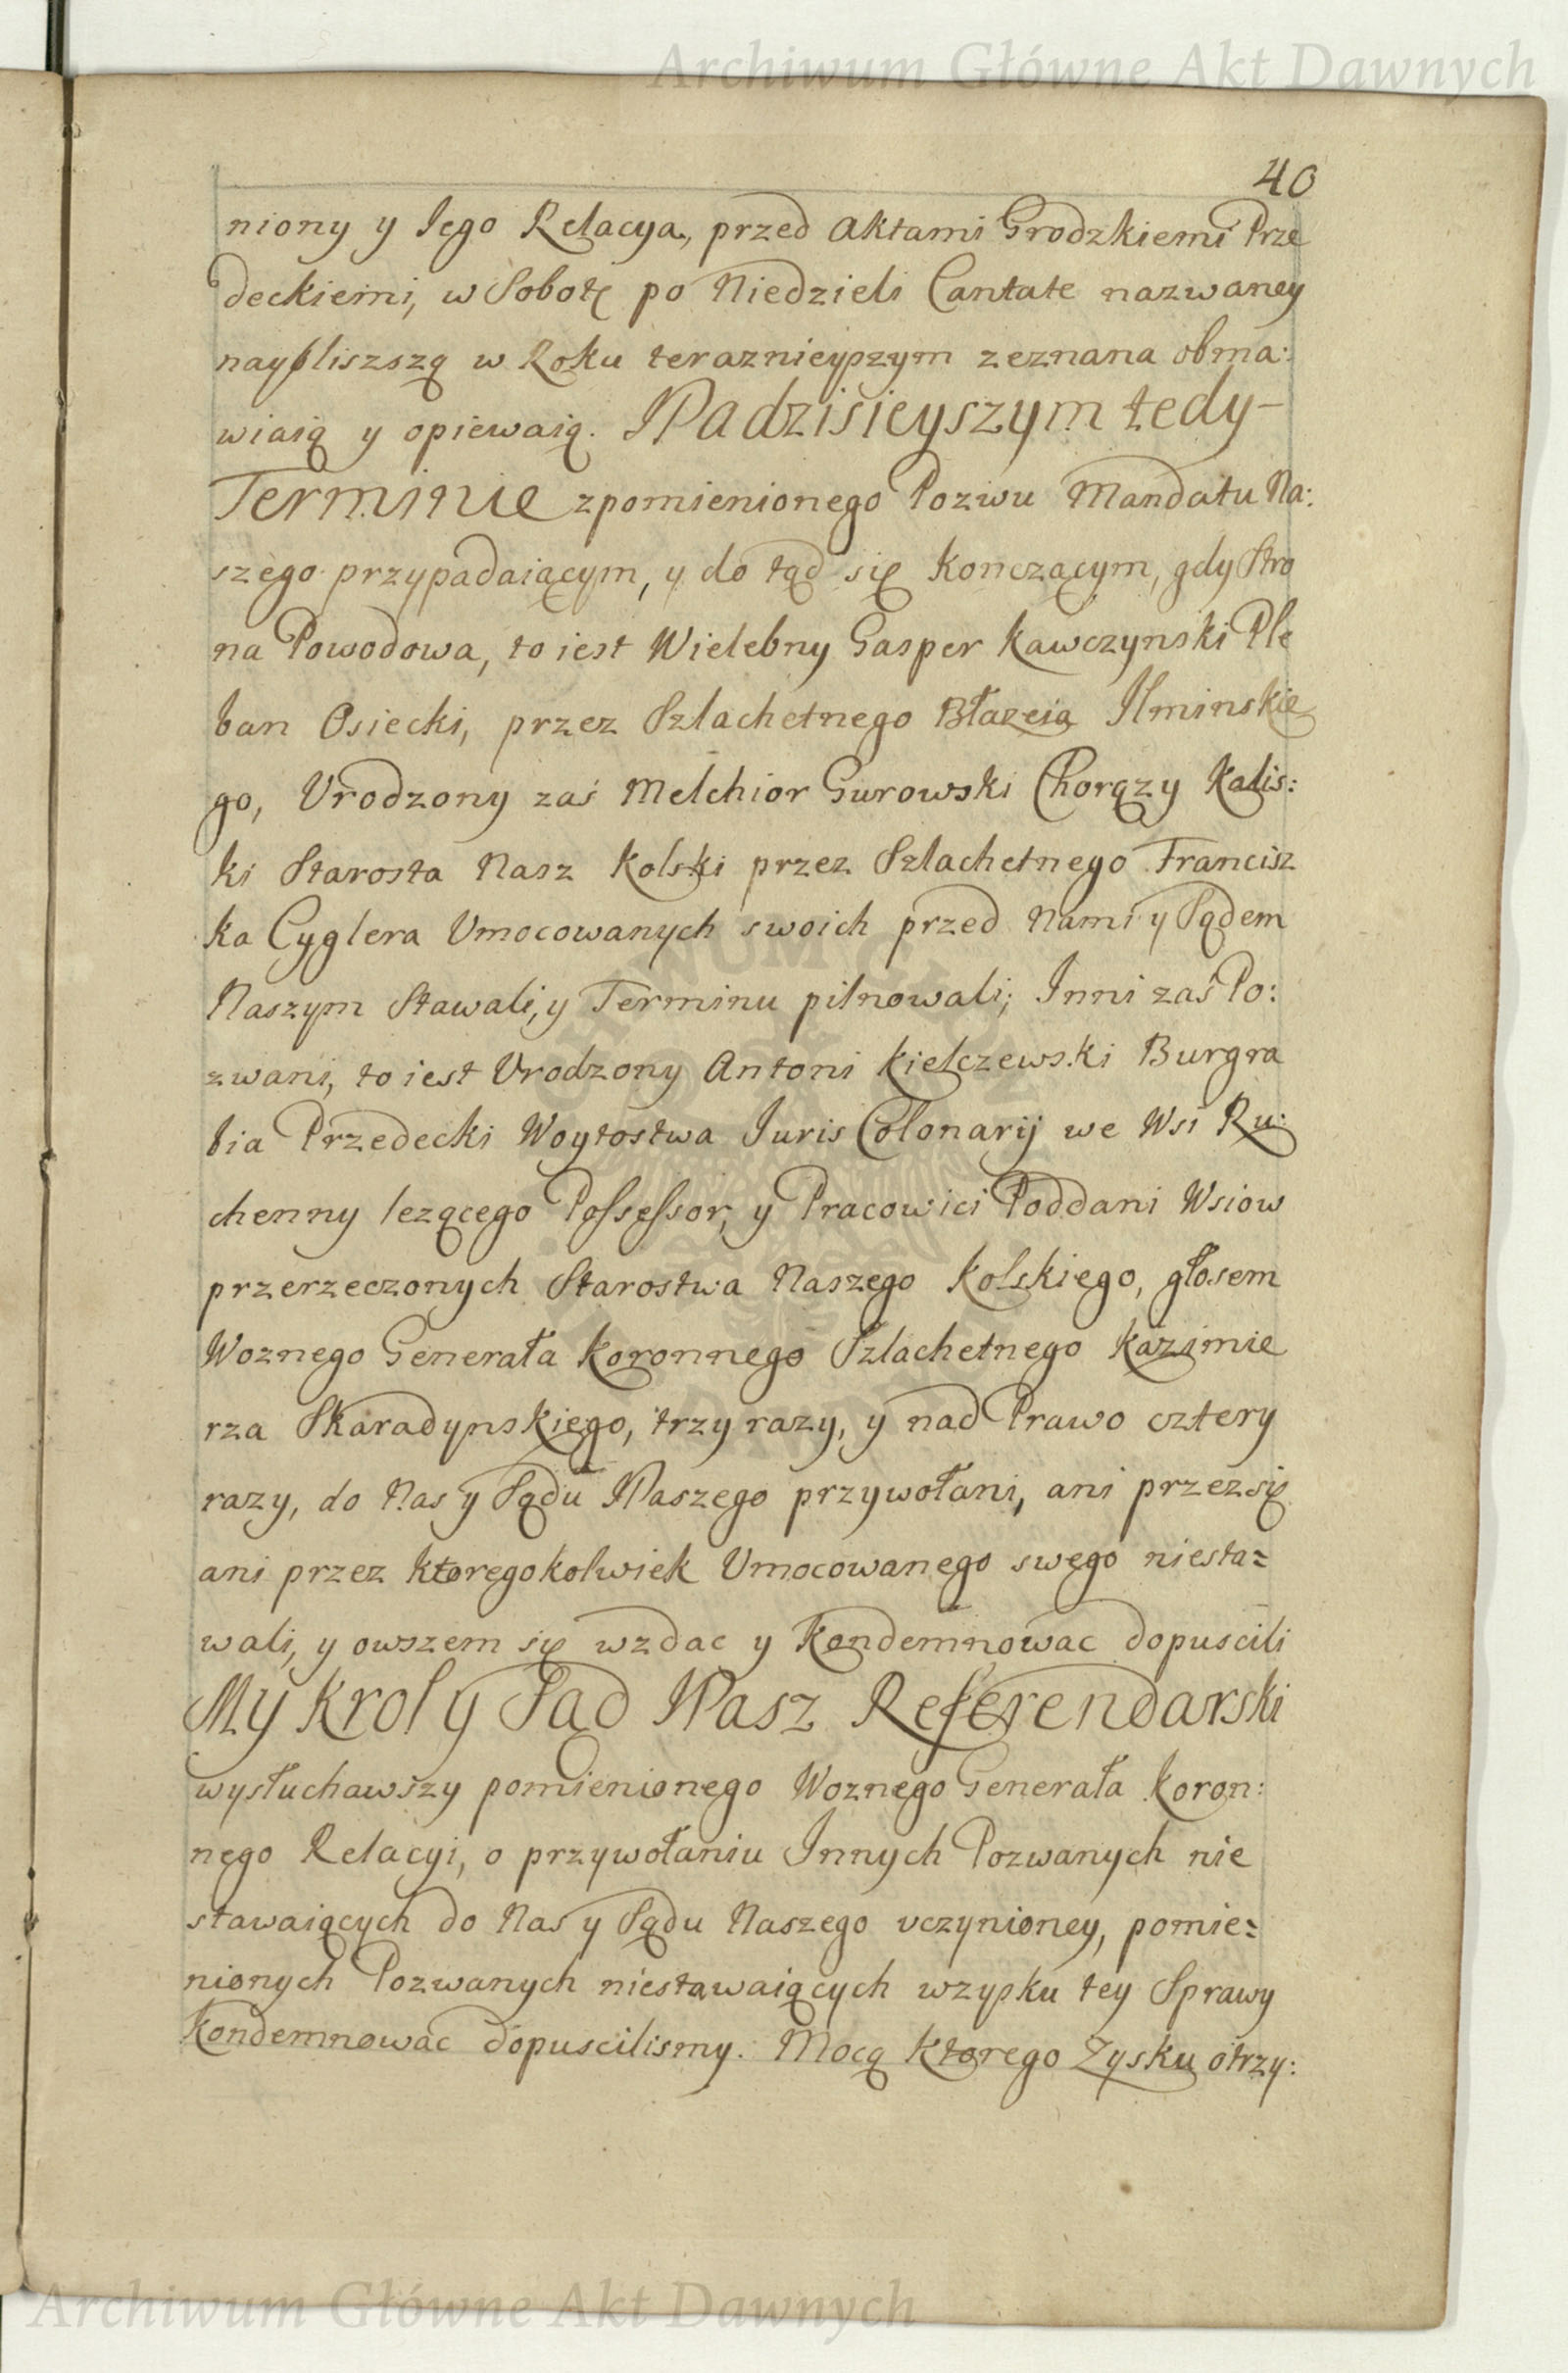 Archiwum Główne Akt Dawnych
40
niony y Jego Relacya, przed Aktami Grodzkiemi Prze
deckiemi, w Sobotę po Niedzieli Cantate nazwaney
naybliszszą w Roku teraznieyszym zeznana obma:
wiaią y opiewaią. Na dzisieyszym tedy-
Terminie zpomienionego Pozwu Mandatu Na:
szego przypadaiącym, y do tąd się kończącym, gdy Stro
na Powodowa, to iest Wielebny Gasper Kawczynski Ple
ban Osiecki, przez Szlachetnego Błazeia Jłminskie
go, Vrodzony zaś Melchior Gurowski Chorązy Kalis:
ki Starosta Nasz Kolski przez Szlachetnego Francisz
ka Cyglera Vmocowanych swoich przed Nami y Sądem
Naszym Stawali, y Terminu pilnowali; Inni zaś Po:
zwani, to iest Vrodzony Antoni Kiełczewski Burgra
bia Przedecki Woytostwa Juris Colonarij we Wsi Ru:
chenny lezącego Possessor, y Pracowici Poddani Wsiow
przerzeczonych Starostwa Naszego Kolskiego, głosem
Woznego Generała Koronnego Szlachetnego Kazimie
rza Skaradynskiego, trzy razy, y nad Prawo cztery
razy, do Nas y Sądu Naszego przywołani, ani przez się
ani przez ktoregokolwiek Vmocowanego swego niesta=
wali, y owszem się wzdac y Kondemnowac dopuscili
My Krol y Sąd Nasz Referendarski
wysłuchawszy pomienionego Woznego Generała Koron:
nego Relacyi, o przywołaniu Innych Pozwanych nie
stawaiących do Nas y Sądu Naszego vczynioney, pomie=
nionych Pozwanych niestawaiących wzysku tey Sprawy
Kondemnowac dopuscilismy. Mocą ktorego Zysku otrzy:
Archiwum Główne Akt Dawnych